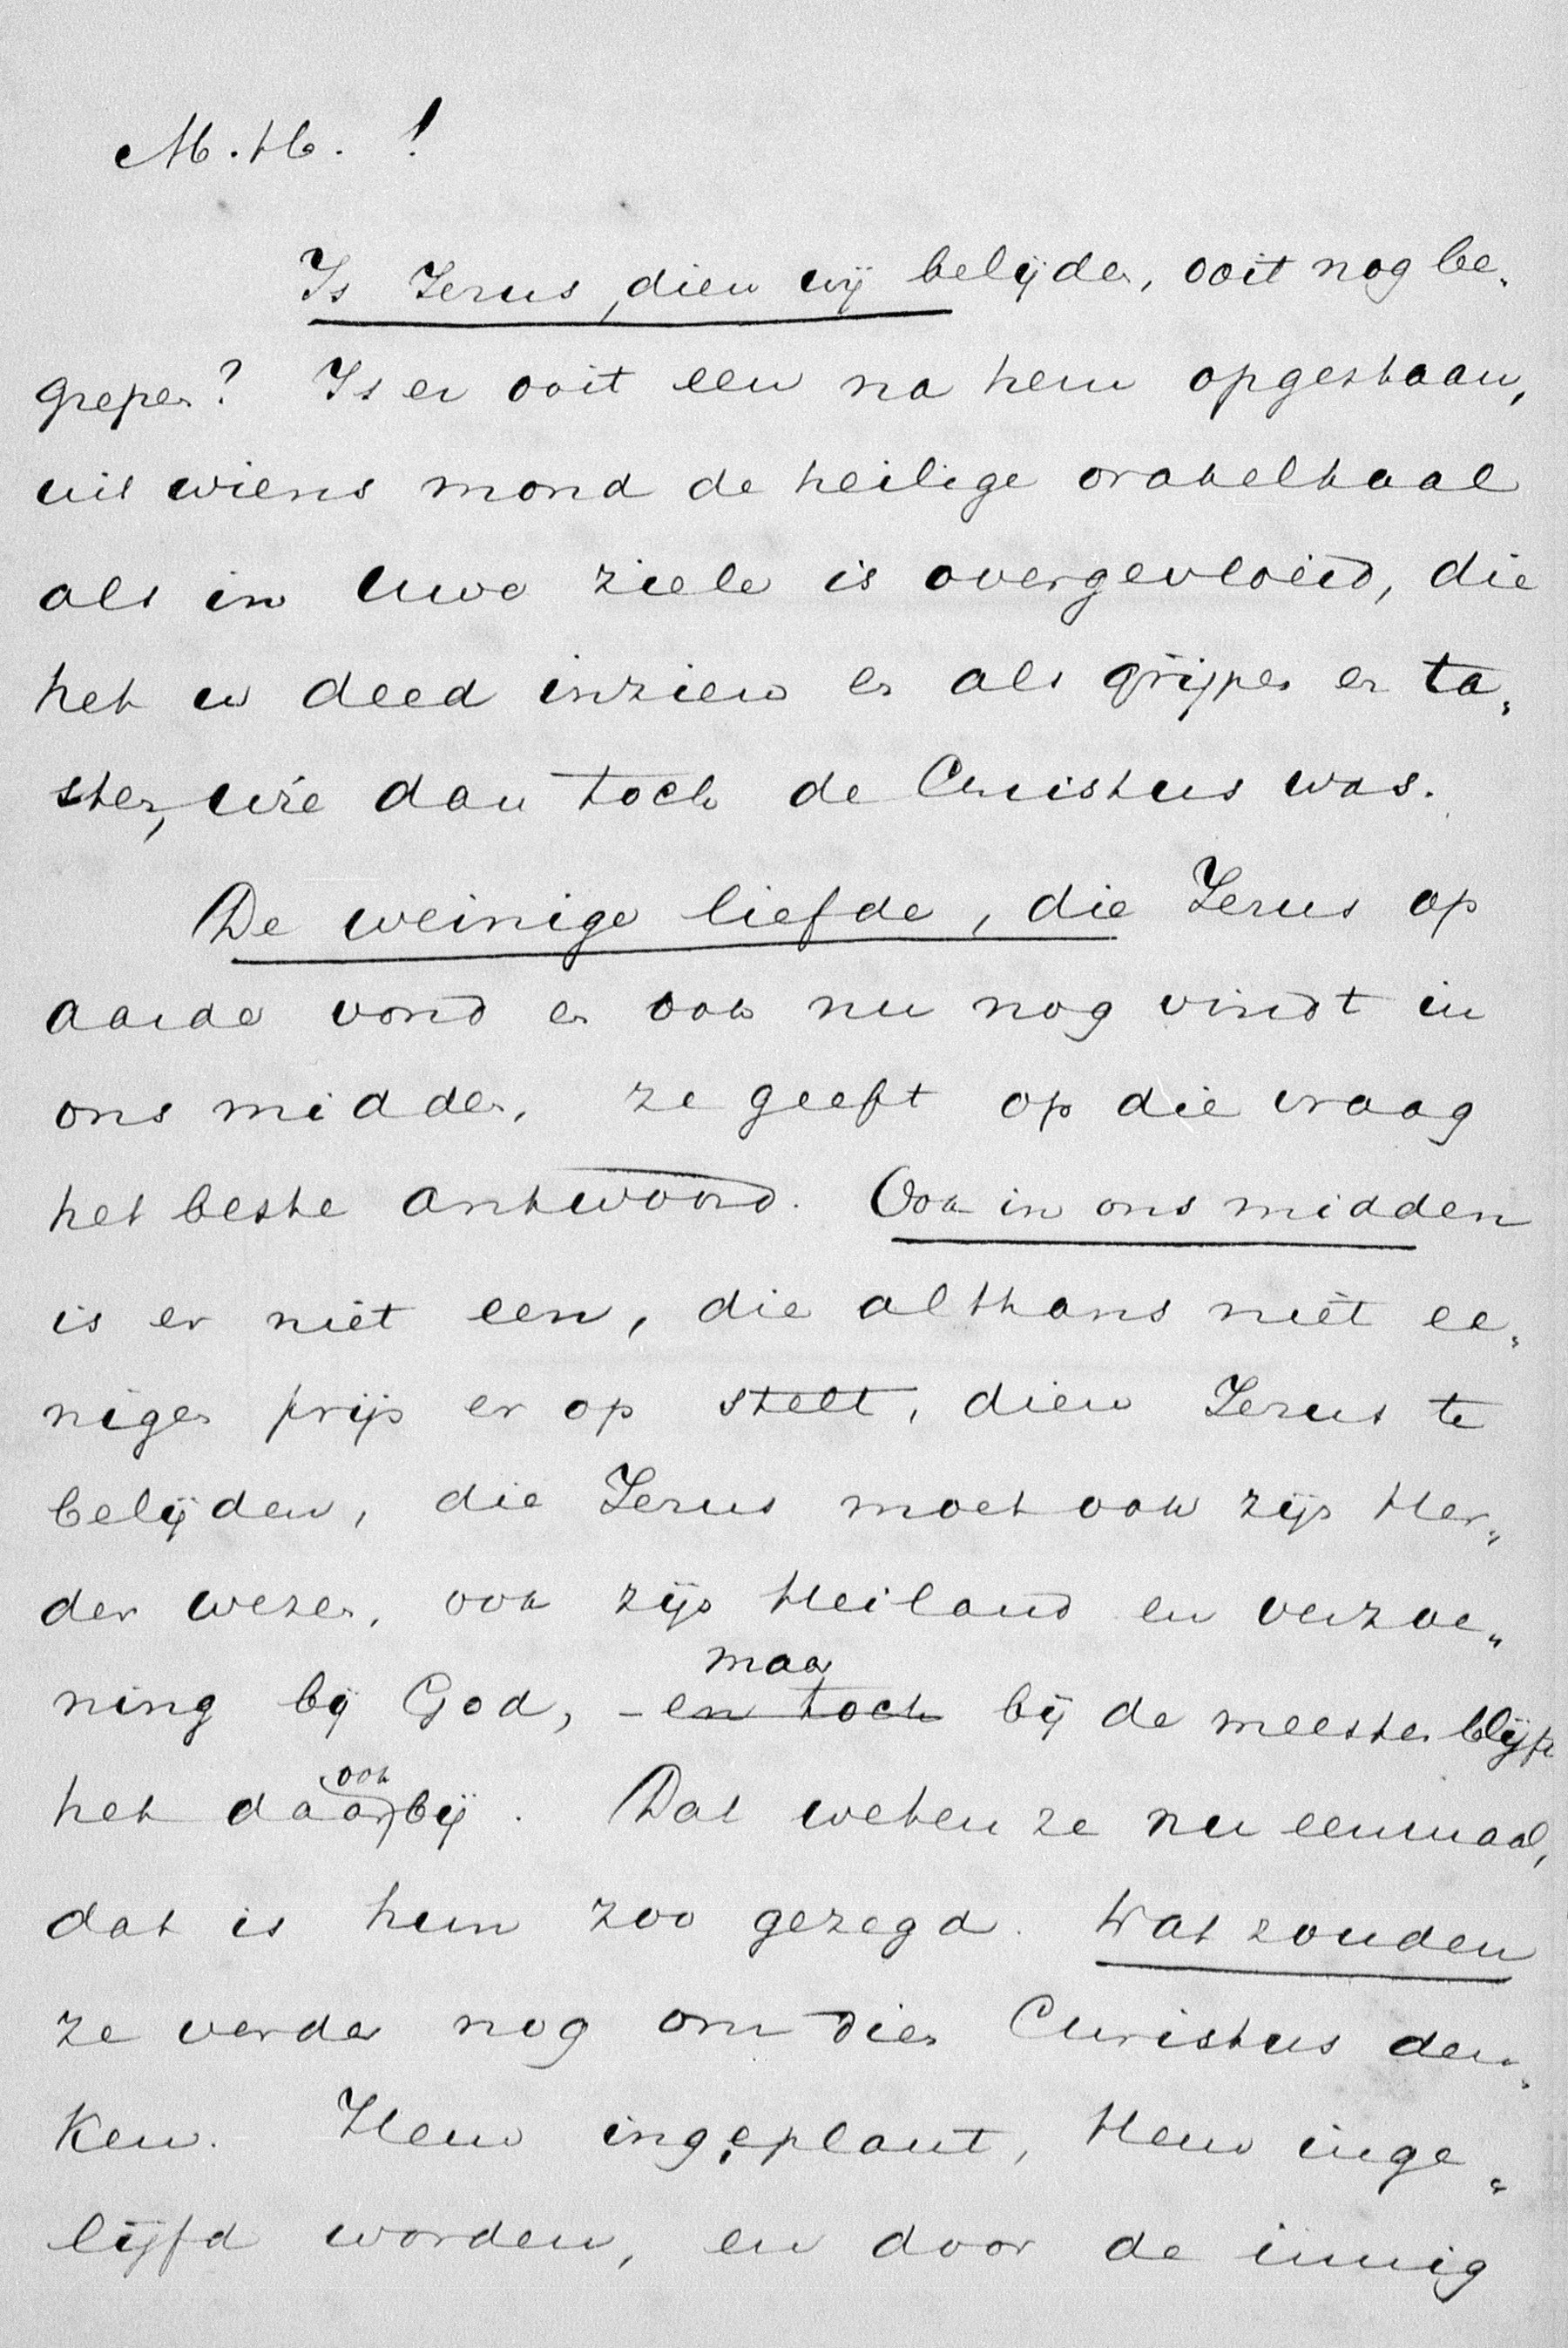 M.H. !
Is Jezus, dien wij belijden, ooit nog be-
grepen? Is er ooit een na hem opgestaan,
uit wiens mond de heilige orakeltaal
als in uwe ziele is overgevloeid, die
het u deed inzien en als grijpen en ta-
sten, wie dan toch de Christus was.
De weinige liefde, die Jezus op
aarde vond en ook nu nog vindt in
ons midden, ze geeft op die vraag
het beste antwoord. Ook in ons midden
is er niet een, die althans niet ee-
nigen prijs er op stelt, dien Jezus te
belijden, die Jezus moet ook zijn Her-
der wezen, ook zijn Heiland en verzoe-
maar
ning bij God, - en toch bij de meesten blijft
ook
het daarbij. Dat weten ze nu eenmaal,
dat is hun zoo gezegd. Wat zouden
ze verder nog om dien Christus den-
ken. Hem ingeplant, Hem inge-
lijfd worden, en door de innig